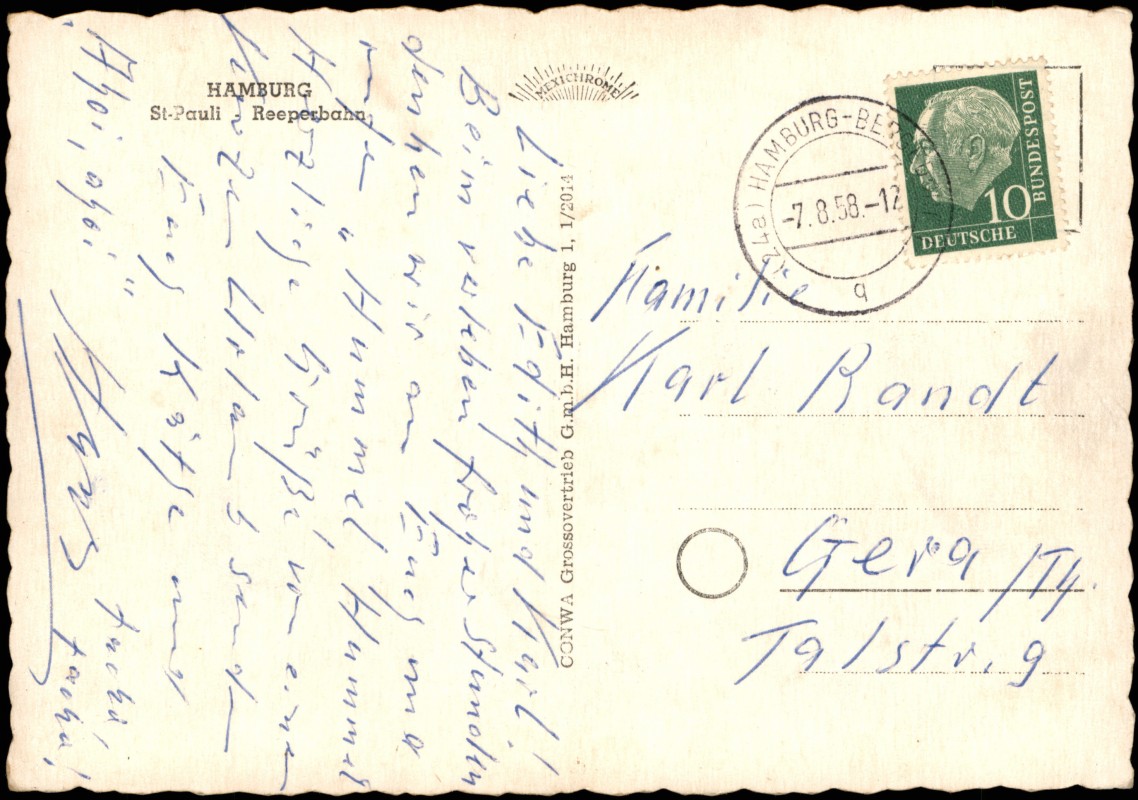 HAMBURG
St-Pauli - Reeperbahn
MEXICHROME
CONWA Grossovertrieb G.m.b.H. Hamburg 1, 1/2014
(24a) HAMBURG-BERGEDORF
-7.8.58.-12
q
10
DEUTSCHE
BUNDESPOST
Liebe Edith und Karl!
Beim verleben froher Stunden
denken wir an Euch und
rufen „Hummel, Hummel
Herzliche Grüße von einem
kurzen Urlaub senden
Euch Käthe und
Ahoi, ahoi"
Hans
Familie
Karl Randt
Gera /Th.
Talstr. 9